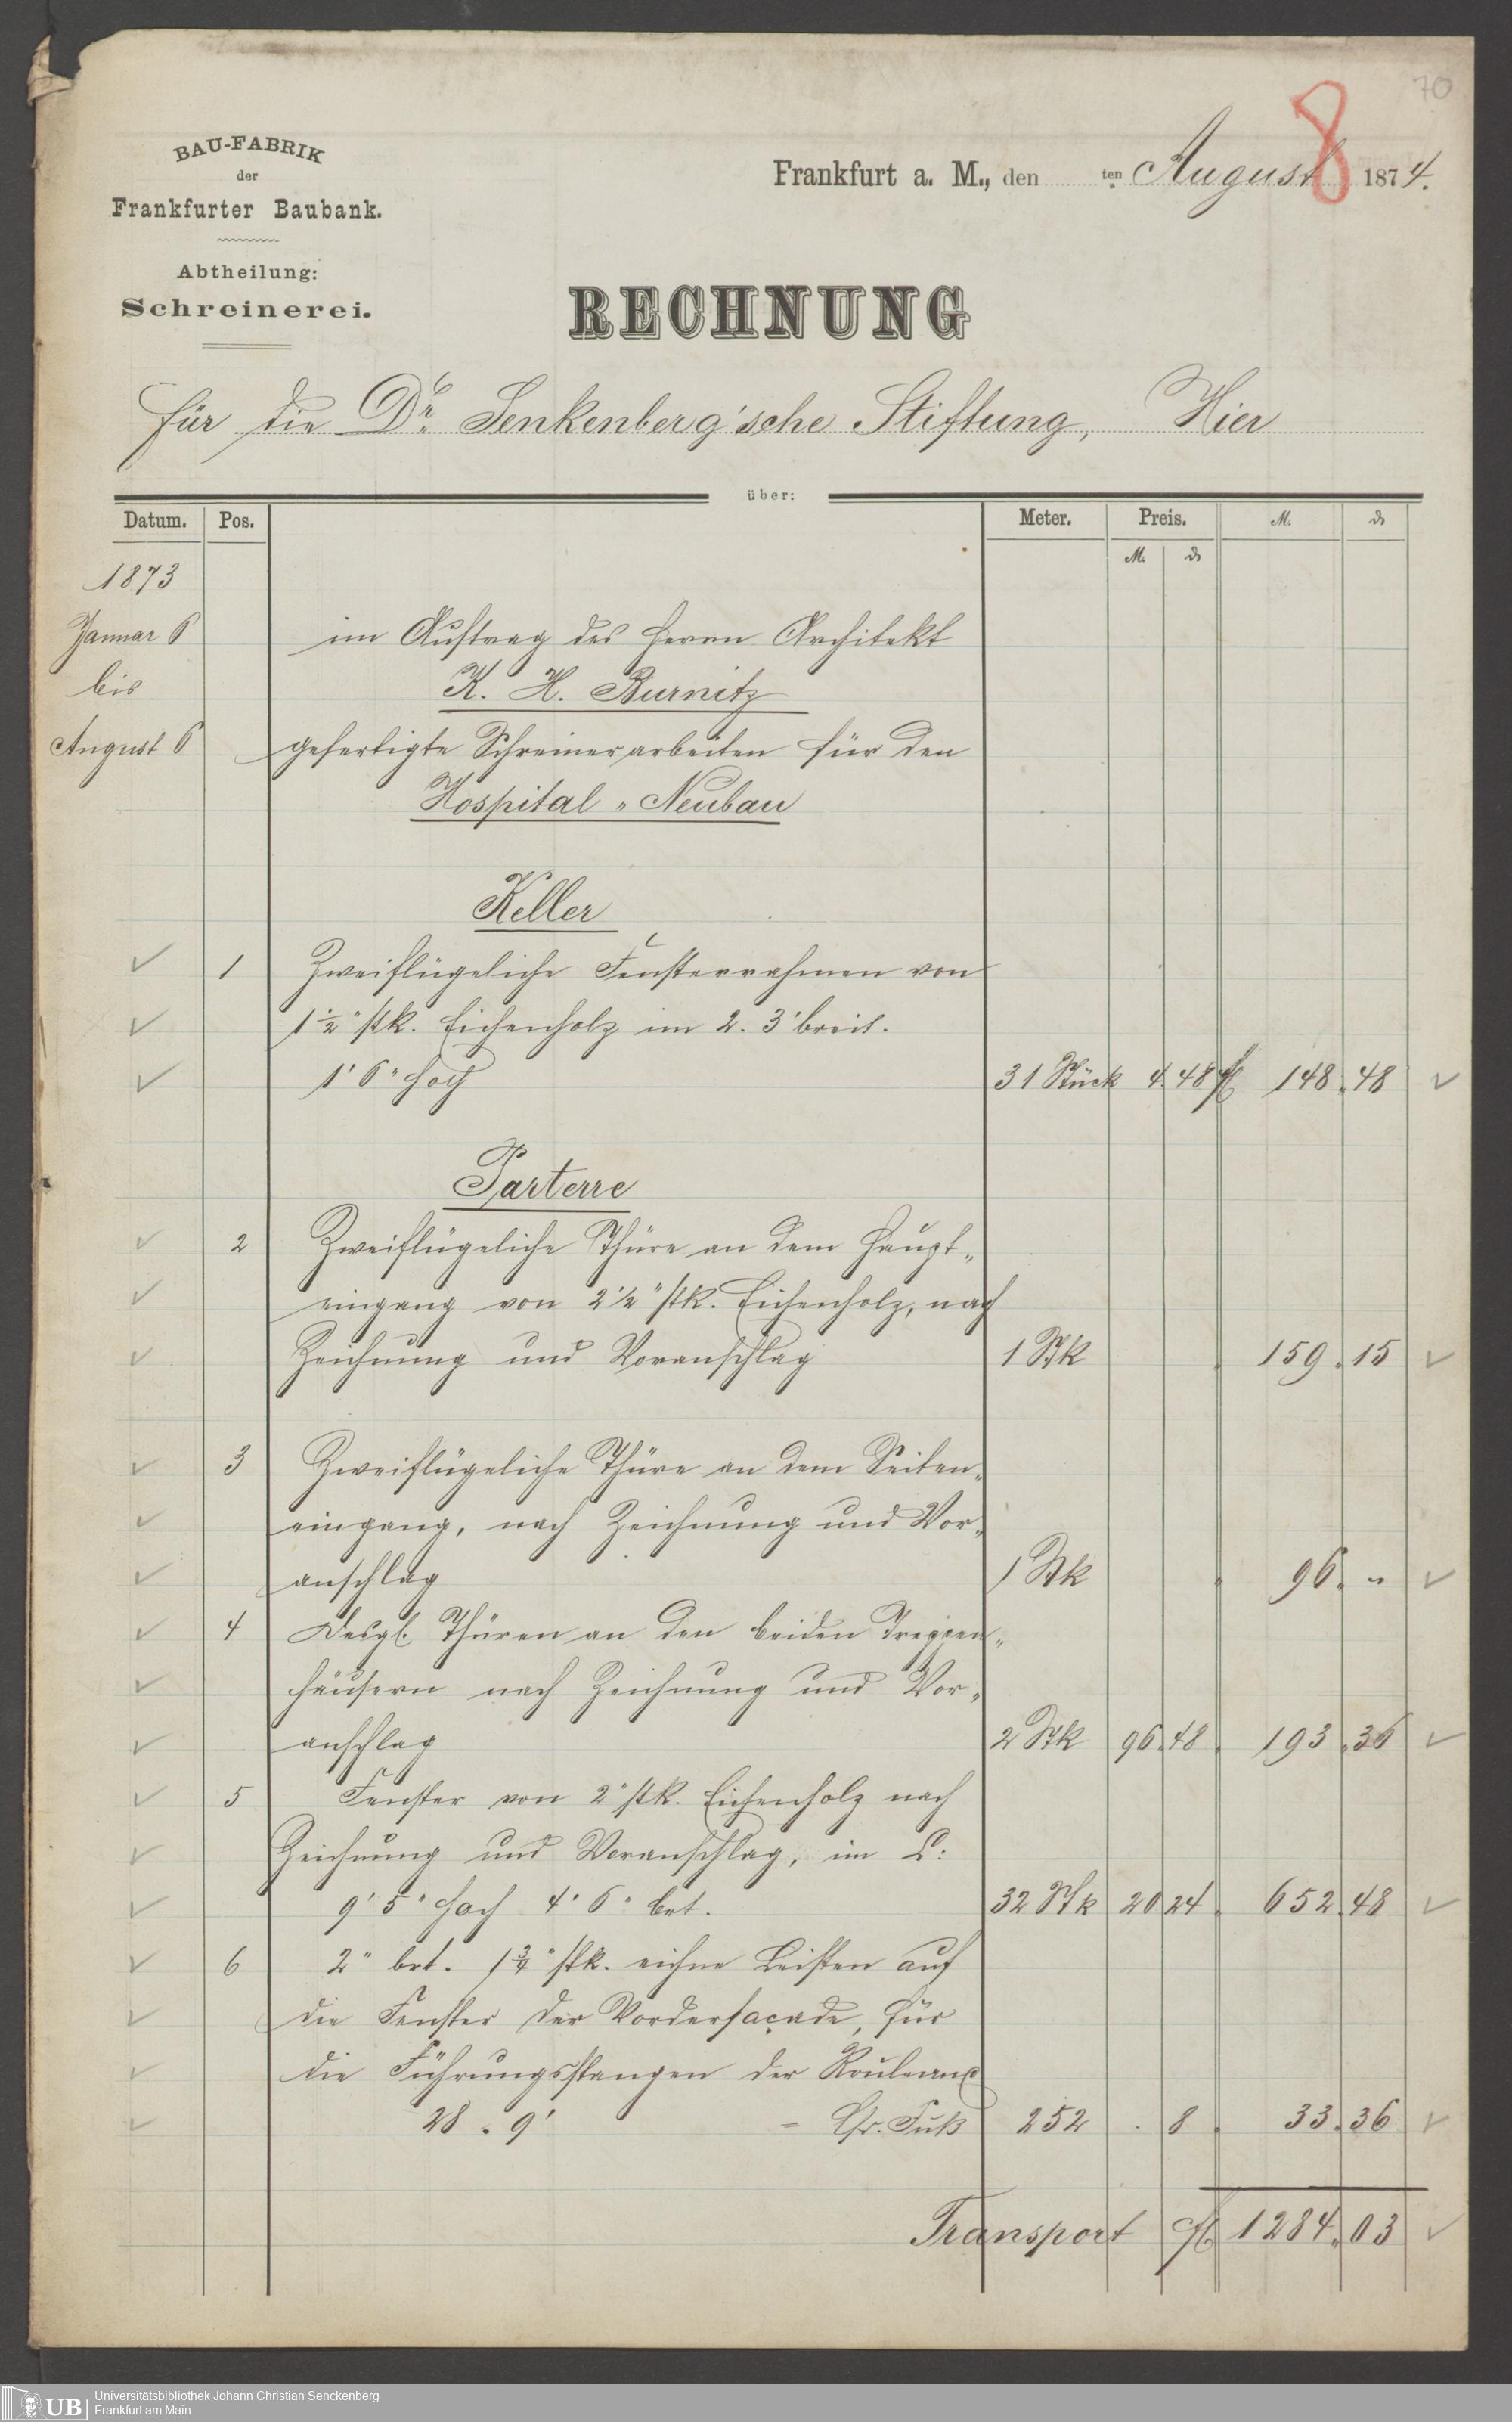 70
8
BAU-FABRIK
der
Frankfurter Baubank.
Abtheilung:
Schreinerei.
Frankfurt a. M., den ten August 1874.
RECHNUNG
für die Dr. Senkenberg'sche Stiftung, Hier
über:
Datum. Pos. Meter. Preis. M. ₰
M. ₰
1873
Januar 6 im Auftrag des Herrn Architekt
bis K. H. Burnitz
August 6 gefertigte Schreinerarbeiten für den
Hospital-Neubau
Keller
1 Zweiflügeliche Fensterrahmen von
1½" stk. Eichenholz im L. 3' breit.
1' 6" hoch 31 Stück 4. 48 fl 148. 48
Parterre
2 Zweiflügeliche Thüre an dem Haupt-
eingang von 2½" stk. Eichenholz, nach
Zeichnung und Voranschlag 1 Stk 159. 15
3 Zweiflügeliche Thüre an dem Seiten-
eingang, nach Zeichnung und Vor-
anschlag 1 Stk 96. "
4 Desgl. Thüren an den beiden Treppen-
häusern nach Zeichnung und Vor-
anschlag 2 Stk 96. 48 193. 36
5 Fenster von 2" stk. Eichenholz nach
Zeichnung und Voranschlag, im L:
9' 5" hoch 4' 6" brt. 32 Stk 20 24 652. 48
6 2" brt. 1¾" stk. eichne Leisten auf
die Fenster der Vorderfaçade, für
die Führungsstangen der Rouleaux
28 . 9' = Fuß 252 . 8 33. 36
Transport fl 1284. 03
UB
Universitätsbibliothek Johann Christian Senckenberg
Frankfurt am Main